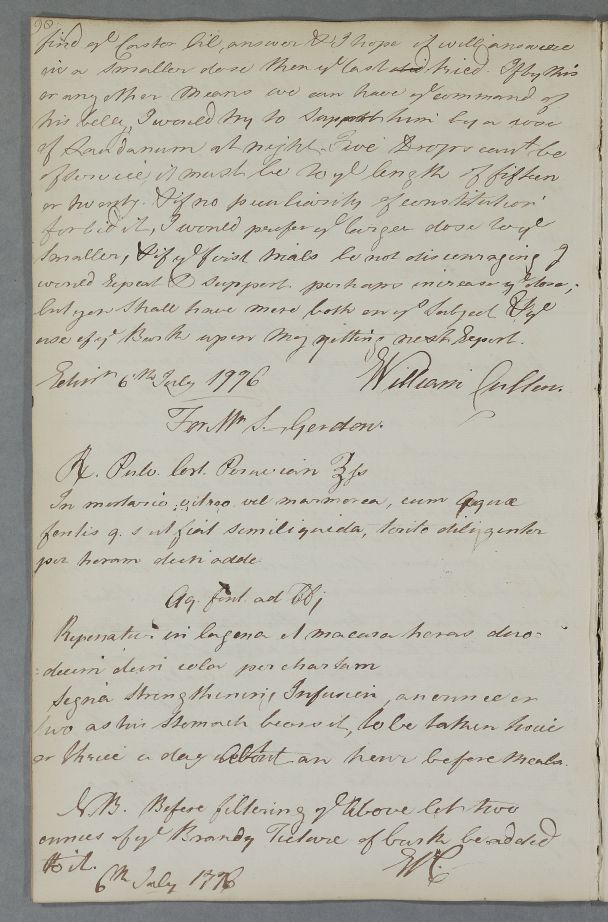 90.
find ye Castor Oil, answer & I hope it will answer
in a smaller dose then ye last tried. If by this
or any other Means we can have ye command of
his belly, I would try to Support him by a dose
of Laudanum at night. Five Drops can't be
of Service it must be to ye length of fifteen
or twenty. & if no peculiarity of constitution
forbid it, I would prefer ye larger dose to ye
Smaller, & if ye first trials be not discouraging I
would Repeat & support perhaps increase ye dose;
but you Shall have more both on ys Subject & ye
use of ye Bark upon My getting next Report.
Edinr. 6th July 1776 William Cullen.
For Mr. S. Gordon.
℞. Pulv. Cort. Peruvian ℥ſs
In mortario vitreo vel marmorea, cum Aquæ
fontis q. s ut fiat semiliquida, terito diligenter
per horam dein adde
Aq. font. ad ℔j
Reponatur in lagena et macera horas duo-
=decim dein cola per chartam
Signa Strengthening Infusion, an ounce or
two as his Stomach bears it, to be taken twice
or thrice a day About an hour before Meals.
N.B. Before filtering ye Above let two
ounces of ye Brandy Ticture of bark be added
to it. WC
6th July 1776